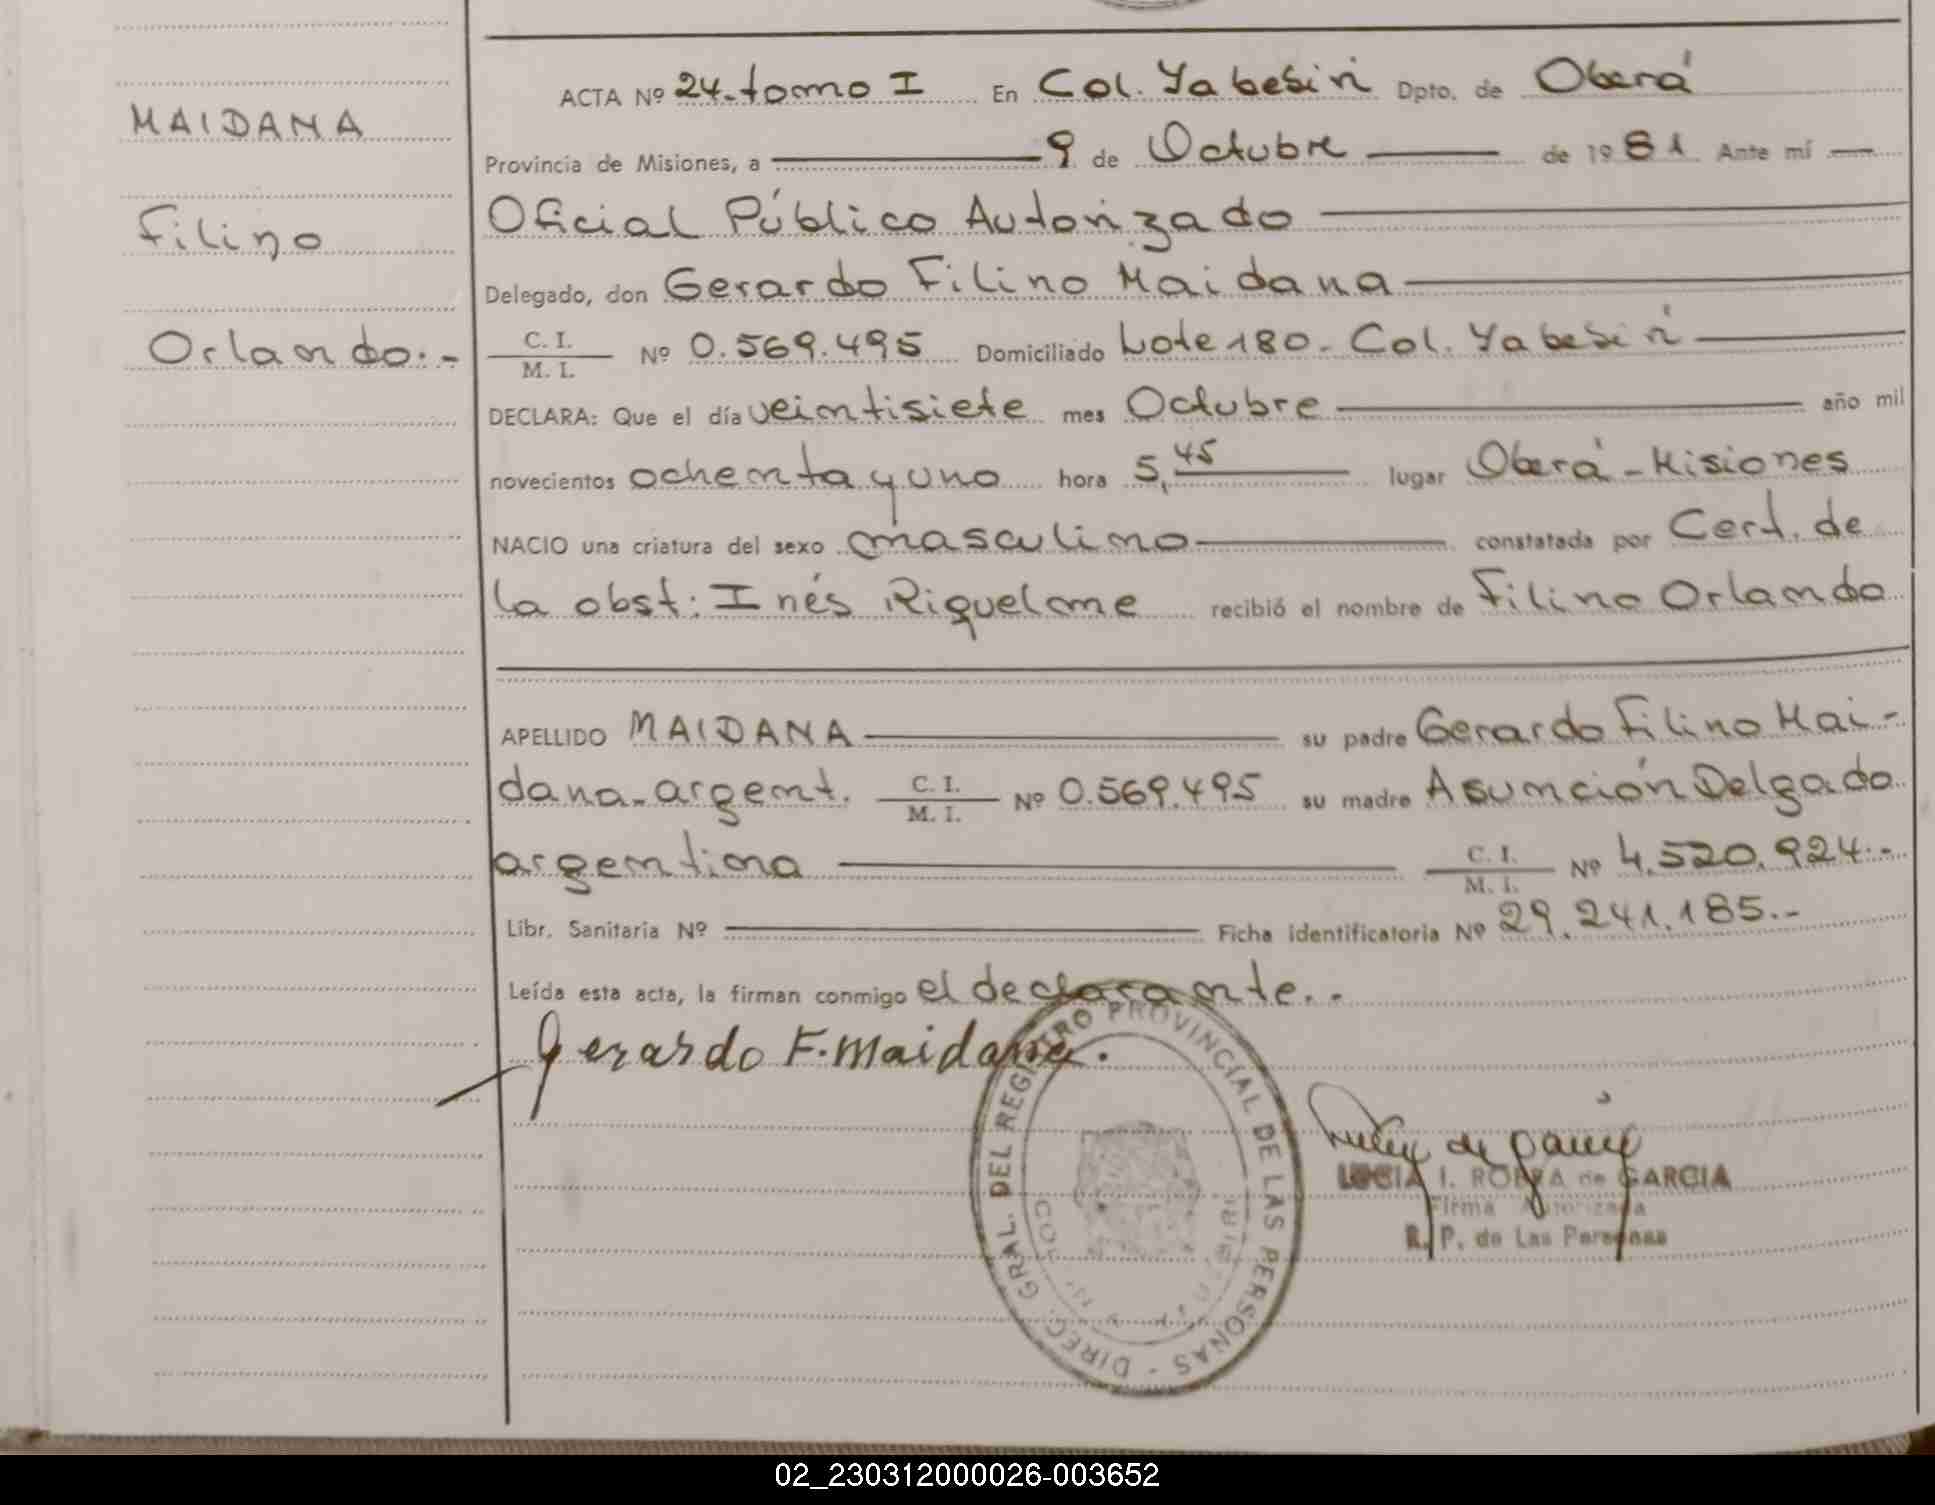 MAIDANA
Filino
Orlando.-
ACTA Nº 24-tomo I En Col. Yabebiri Dpto. de Oberá
Provincia de Misiones, a 9 de Octubre de 1981 Ante mí
Oficial Público Autorizado
Delegado, don Gerardo Filino Maidana
C. I.
M. I. Nº 0.569.495 Domiciliado Lote 180- Col. Yabebiri
DECLARA: Que el día veintisiete mes Octubre año mil
novecientos ochenta y uno hora 5,45 lugar Oberá - Misiones
NACIO una criatura del sexo masculino constatada por Cert. de
la obst: Inés Riquelme recibió el nombre de Filino Orlando
APELLIDO MAIDANA su padre Gerardo Filino Mai-
dana-argent. C. I. M. I. Nº 0.569.495 su madre Asunción Delgado
argentina C. I. M. I. Nº 4.520.924.-
Libr. Sanitaria Nº Ficha identificatoria Nº 29.241.185.-
Leída esta acta, la firman conmigo el declarante..
Gerardo F. Maidana.
DIREC. GRAL. DEL REGISTRO PROVINCIAL DE LAS PERSONAS -
LUCIA I. ROBRA de GARCIA
Firma Autorizada
R. P. de Las Personas
02_230312000026-003652